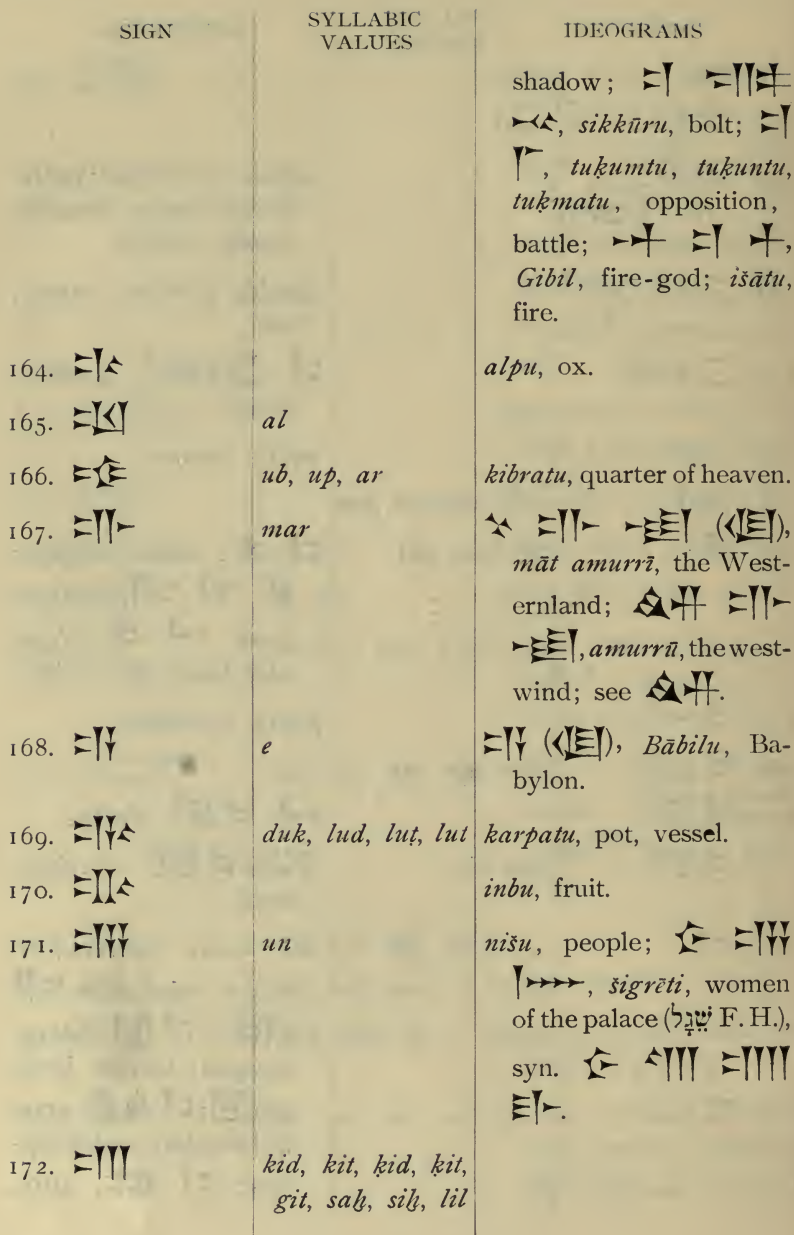 SIGN SYLLABIC VALUES IDEOGRAMS
shadow; 𒄑
sikkūru, bolt; 𒄑
𒇲, tuḳumtu, tuḳuntu,
tuḳmatu, opposition,
battle; 𒀭 𒄑 𒁇,
Gibil, fire-god; išātu,
fire.
164. 𒄞 alpu, ox.
165. 𒀠 al
166. 𒌒 ub, up, ar kibratu, quarter of heaven.
167. 𒈥 mar 𒆳 𒈥 𒌅 (𒆠),
māt amurrī, the West-
ernland; 𒅎 𒈥
𒌅, amurrū, the west-
wind; see 𒅎.
168. 𒂊 e 𒂊 (𒆠), Bābilu, Ba-
bylon.
169. 𒂁 duk, lud, luṭ, lut karpatu, pot, vessel.
170. inbu, fruit.
171. 𒌦 un nišu, people; 𒊩 𒌦
𒈨𒌍, šigrēti, women
of the palace (שֵׁגָל F. H.),
syn. 𒊩 𒂍
𒃲.
172. 𒆤 kid, kit, ḳid, ḳit,
git, saḫ, siḫ, lil